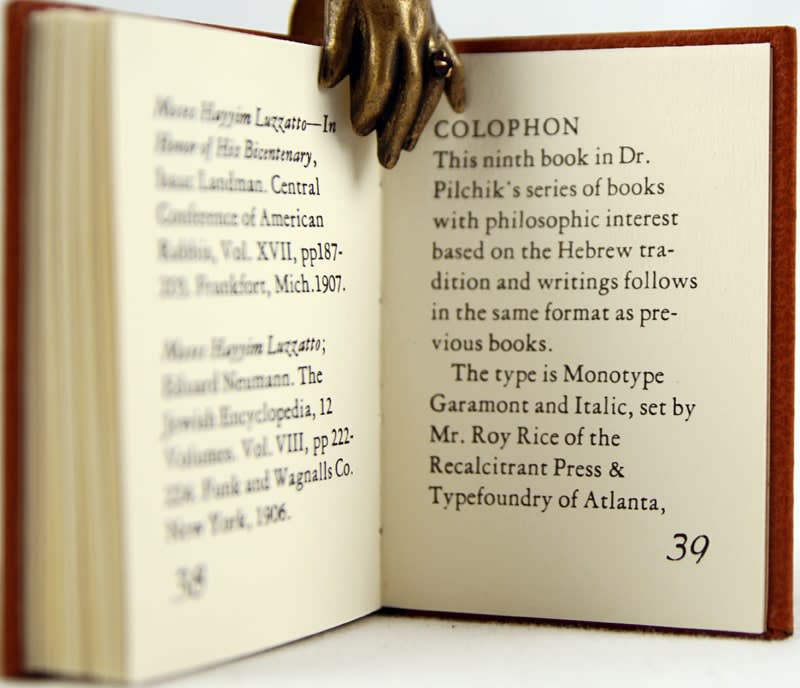 Moses Hayyim Luzzatto—In
Honor of His Bicentenary,
Isaac Landman. Central
Conference of American
Rabbis, Vol. XVII, pp187-
Frankfort, Mich.1907.
Moses Hayyim Luzzatto;
Eduard Neumann. The
Jewish Encyclopedia, 12
Volumes. Vol. VIII, pp 222-
224. Funk and Wagnalls Co.
New York, 1906.
38
COLOPHON
This ninth book in Dr.
Pilchik's series of books
with philosophic interest
based on the Hebrew tra-
dition and writings follows
in the same format as pre-
vious books.
The type is Monotype
Garamont and Italic, set by
Mr. Roy Rice of the
Recalcitrant Press &
Typefoundry of Atlanta,
39